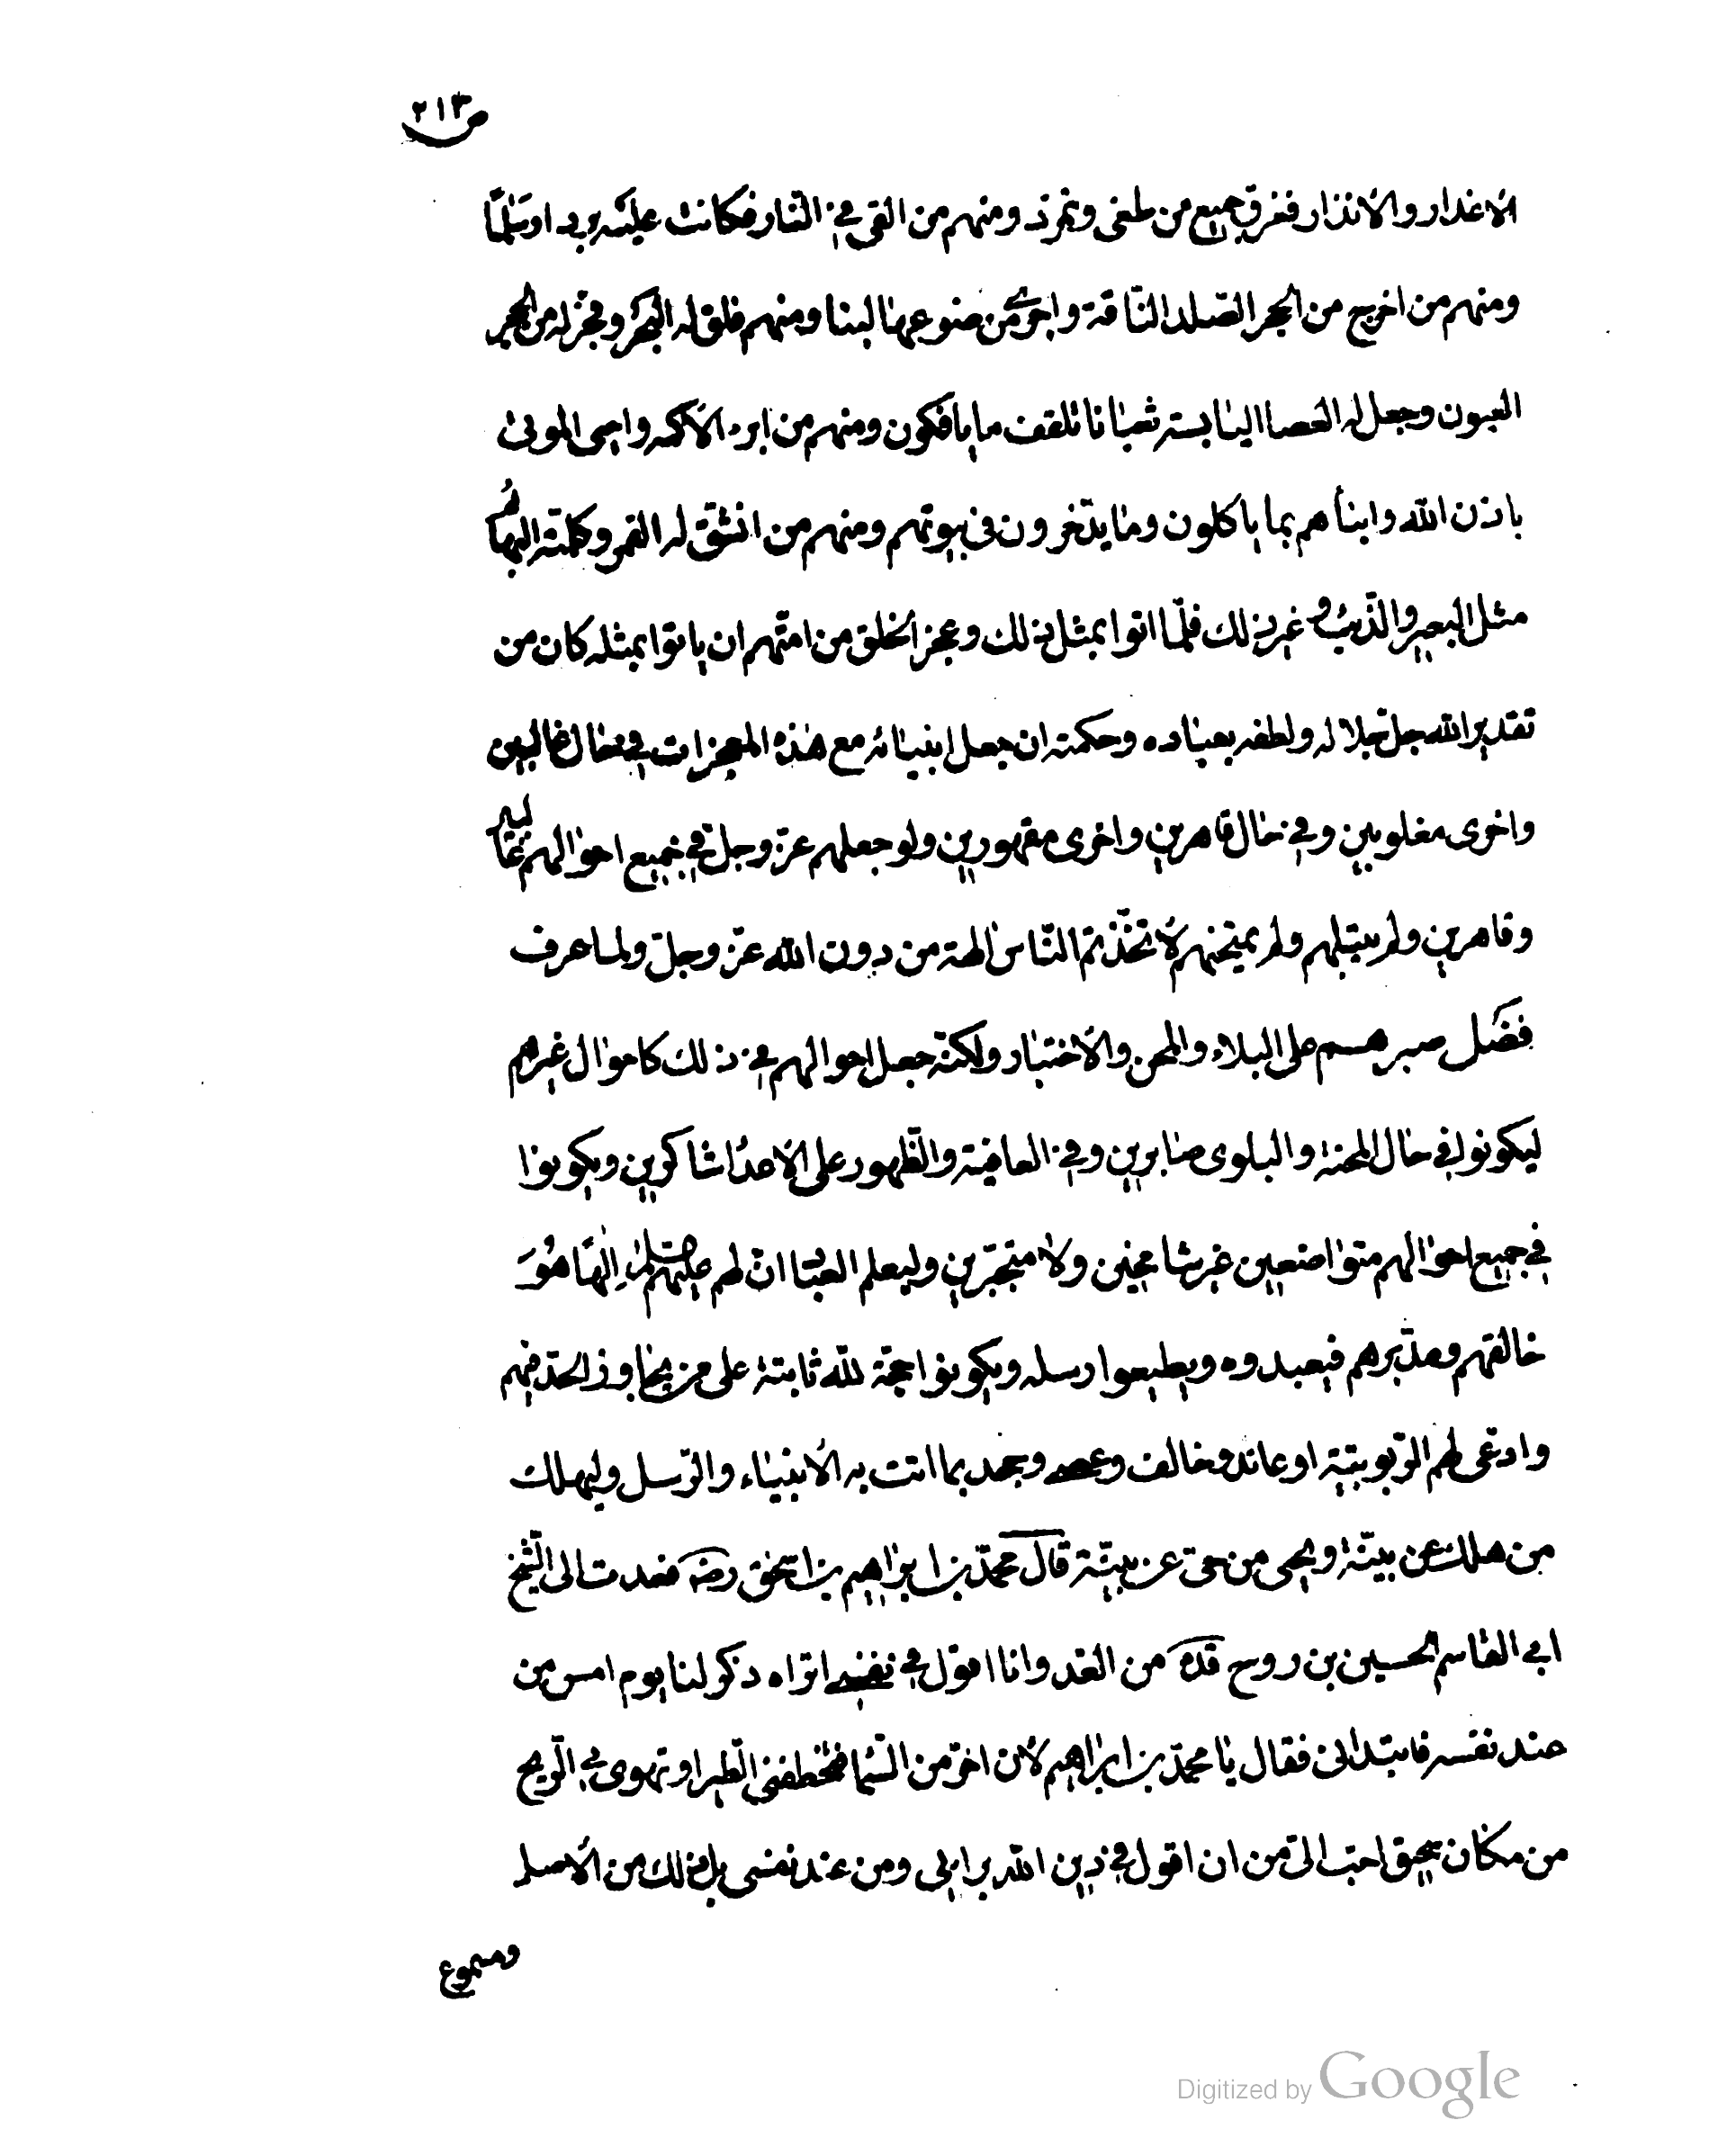 ص ٢١٣
الاعذار والانذار فغرق جميع من طغى وتمرد ومنهم من القى في النار فكانت عليه بردا وسلاما
ومنهم من اخرج من الحجر الصلد الناقة واجرى من ضرعها لبنا ومنهم فلق له البحر وفجر له من الحجر
العيون وجعل له العصا اليابسة ثعبانا تلقف ما يافكون ومنهم من ابرء الاكمه واحيى الموتى
باذن الله وانبأهم بما ياكلون وما يدخرون في بيوتهم ومنهم من انشق له القمر وكلمته البهائم
مثل البعير والذئب وغير ذلك فلما اتوا بمثل ذلك وعجز الخلق من امتهم ان ياتوا بمثله كان من
تقدير الله جل جلاله ولطفه بعباده وحكمته ان جعل انبيائه مع هذه المعجزات في حال غالبين
واخرى مغلوبين وفي حال قاهرين واخرى مقهورين ولو جعلهم عز وجل في جميع احوالهم غالبين
وقاهرين ولم يبتلهم ولم يمتحنهم لاتخذهم الناس الهة من دون الله عز وجل ولما عرف
فضل صبرهم على البلاء والمحن والاختبار ولكنه جعل احوالهم في ذلك كاحوال غيرهم
ليكونوا في حال المحنة والبلوى صابرين وفي العافية والظهور على الاعداء شاكرين ويكونوا
في جميع احوالهم متواضعين غير شامخين ولا متجبرين وليعلم العباد ان لهم عليهم السلام الها هو
خالقهم ومدبرهم فيعبدوه ويطيعوا رسله ويكونوا حجة لله ثابتة على من تجاوز الحد فيهم
وادعى لهم الربوبية او عاند وخالف وعصى وجحد بما اتت به الانبياء والرسل وليهلك
من هلك عن بينة ويحيى من حى عن بينة قال محمد بن ابراهيم بن اسحق رضه فعدت الى الشيخ
ابي القاسم الحسين بن روح قده من الغد وانا اقول في نفسى اتراه ذكر لنا يوم امس من
عند نفسه فابتدانى فقال يا محمد بن ابراهيم لان اخر من السماء فتخطفنى الطير او تهوى بي الريح
من مكان سحيق احب الى من ان اقول في دين الله برايى ومن عند نفسى بل ذلك من الاصل
ومسموع
Digitized by Google